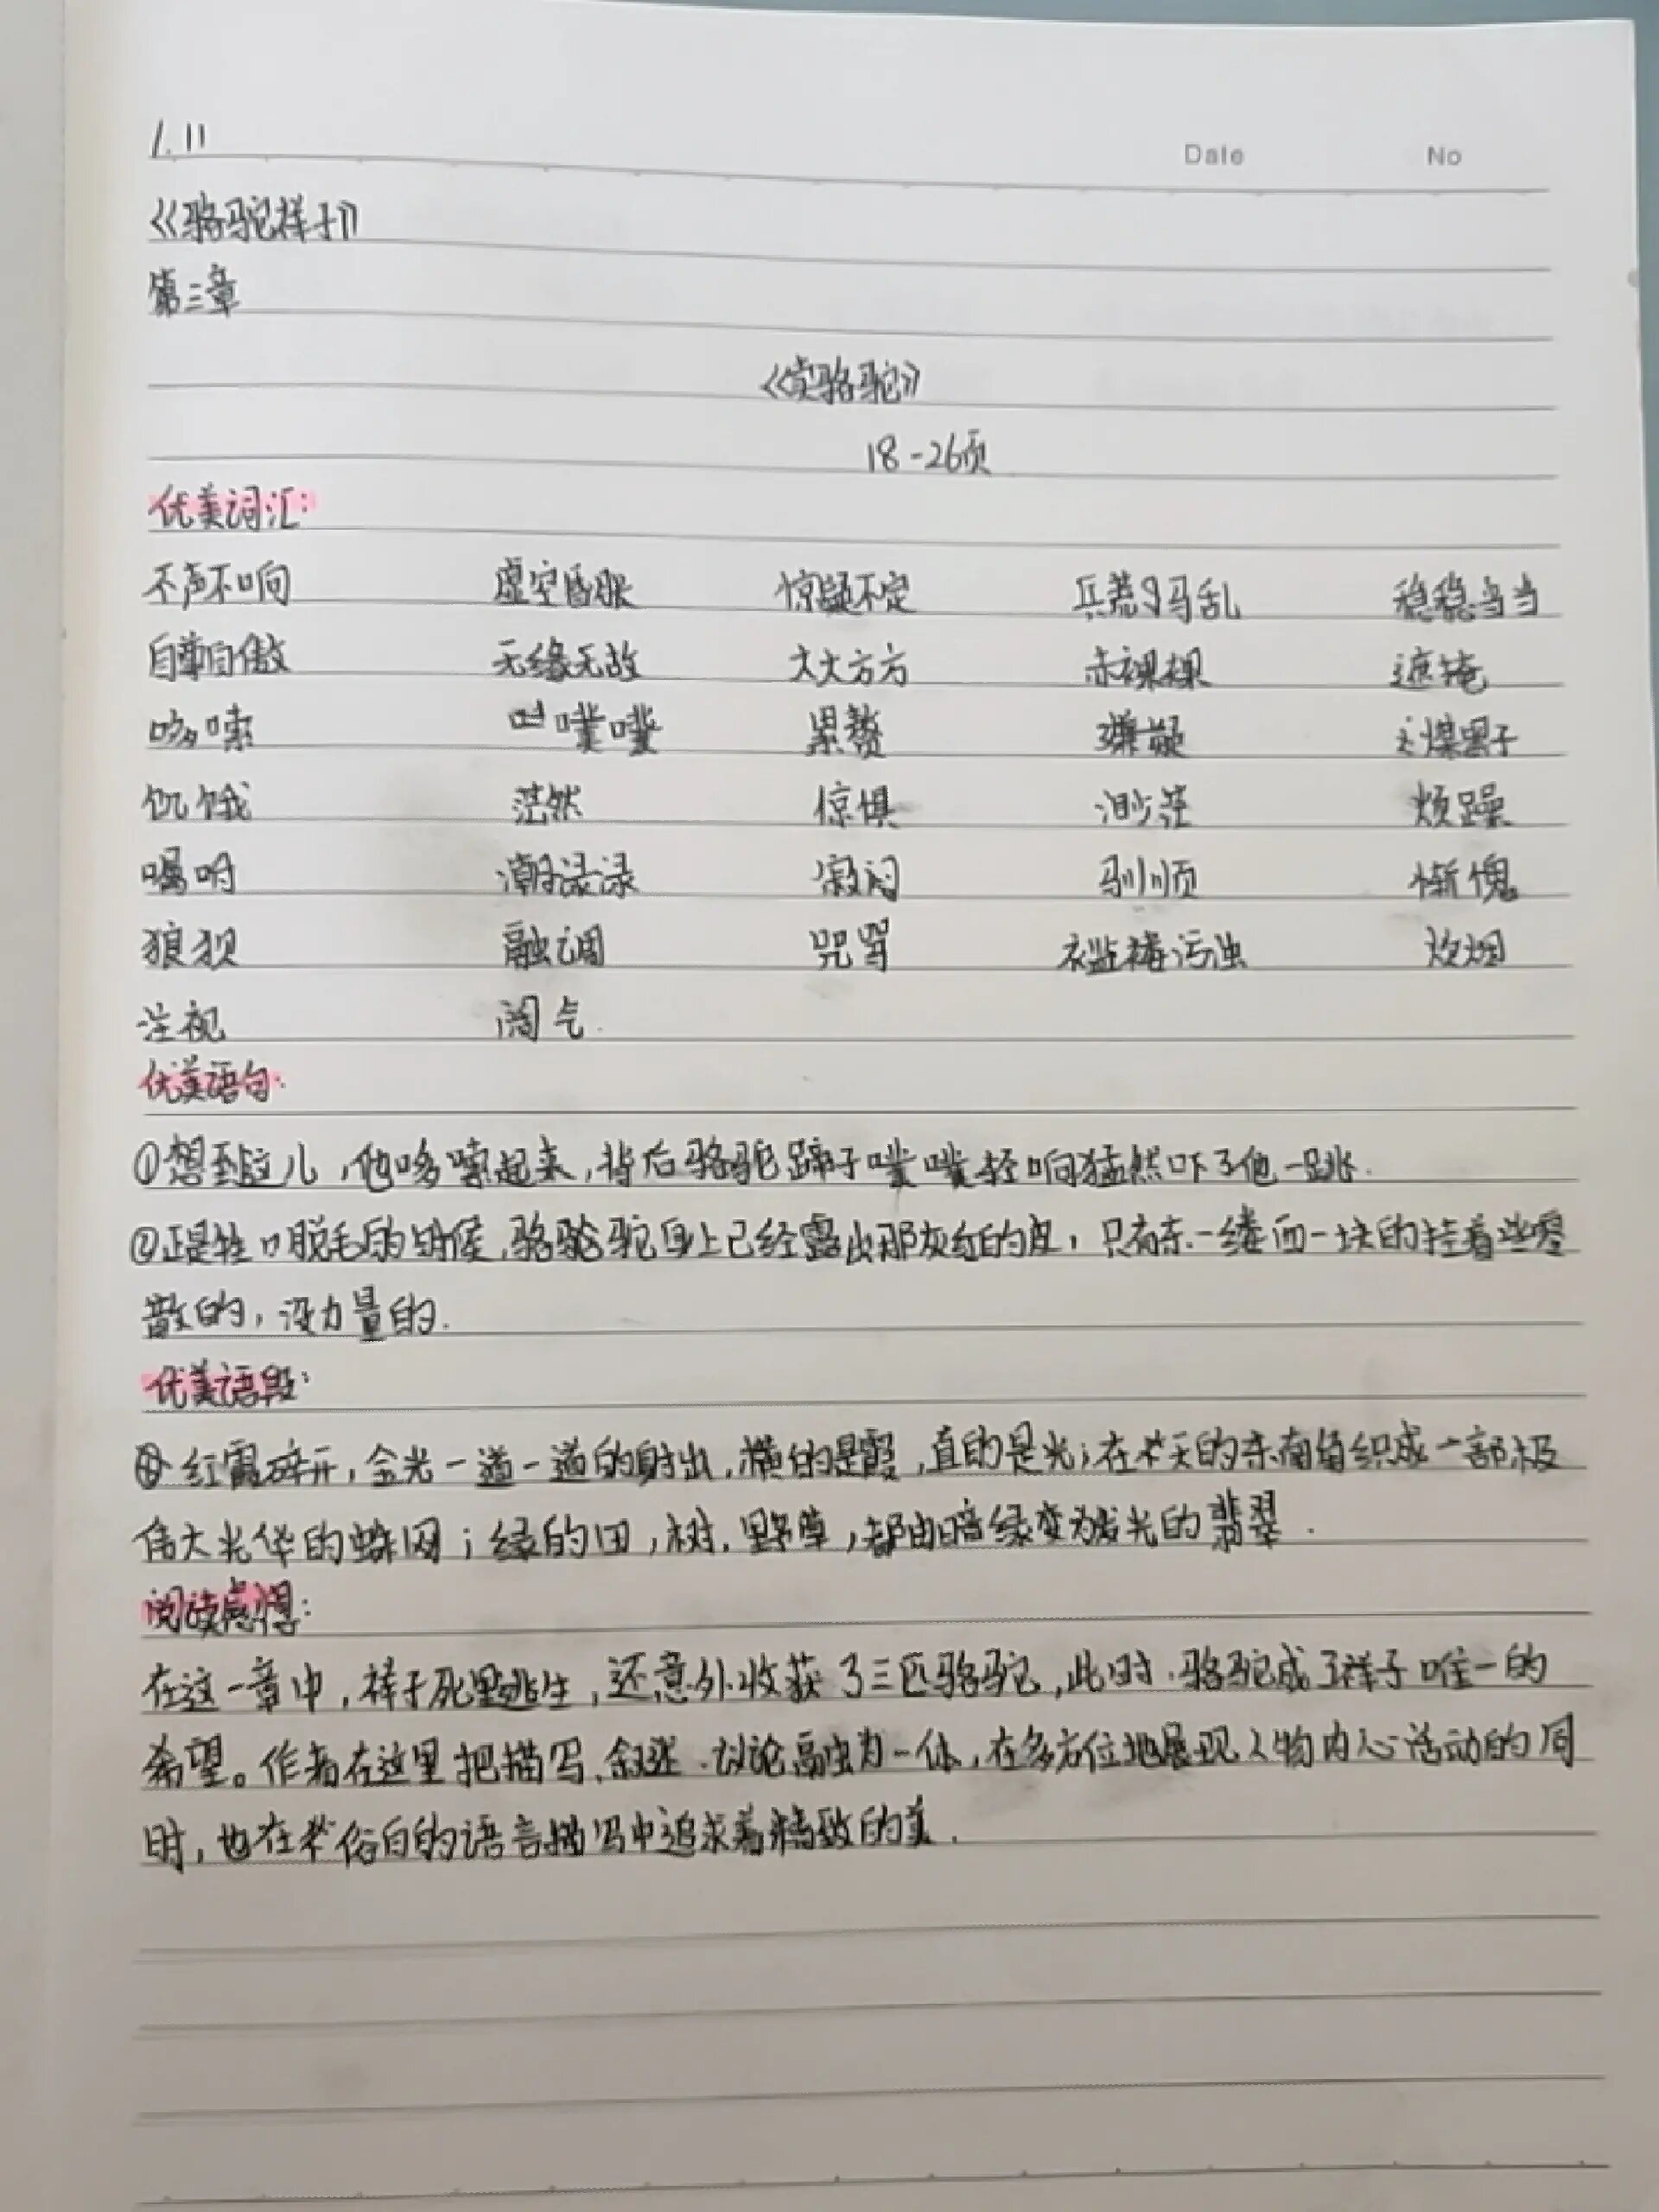 1.11
Date No
《骆驼祥子》
第三章
《卖骆驼》
18-26页
优美词汇:
不声不响 虚空昏胀 惊疑不定 兵荒马乱 稳稳当当
自尊自傲 无缘无故 大大方方 赤裸裸 遮掩
哆嗦 噗噗 累赘 嫌疑 煤黑子
饥饿 茫然 惊惧 渺茫 烦躁
嘱咐 潮渌渌 寂闷 驯顺 惭愧
狼狈 融调 咒骂 褴褛污浊 炊烟
注视 阔气.
优美语句:
①想到这儿,他哆嗦起来,背后骆驼蹄子噗噗轻响猛然吓了他一跳.
②正是牲口脱毛的时候,骆驼身上已经露出那灰红的皮,只有东一缕西一块的挂着些零
散的,没力量的.
优美语段:
红霞碎开,金光一道一道的射出,横的是霞,直的是光;在天的东南角织成一部极
伟大光华的蛛网;绿的田,树,野草,都由暗绿变为发光的翡翠.
阅读感悟:
在这一章中,祥子死里逃生,还意外收获了三匹骆驼,此时.骆驼成了祥子唯一的
希望。作者在这里把描写、叙述.议论融为一体,在多方位地展现人物内心活动的同
时,也在俗白的语言描写中追求着精致的美.